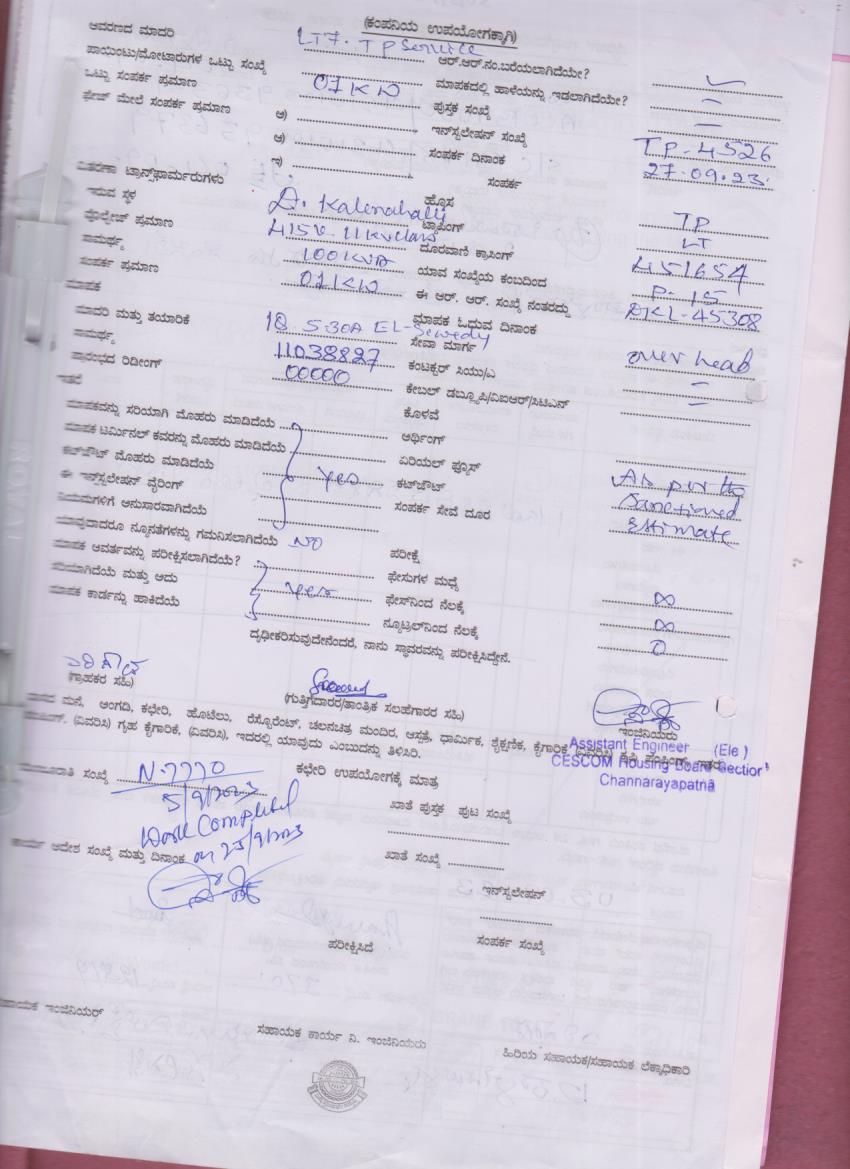 (ಕಂಪನಿಯ ಉಪಯೋಗಕ್ಕಾಗಿ)
ಆವರಣದ ಮಾದರಿ LT7. TP Service ಆರ್.ಆರ್.ನಂ.ಬರೆಯಲಾಗಿದೆಯೇ? ✓
ಪಾಯಿಂಟು/ಮೋಟಾರುಗಳ ಒಟ್ಟು ಸಂಖ್ಯೆ ಮಾಪಕದಲ್ಲಿ ಹಾಳೆಯನ್ನು ಇಡಲಾಗಿದೆಯೇ? –
ಒಟ್ಟು ಸಂಪರ್ಕ ಪ್ರಮಾಣ 01KW ಪುಸ್ತಕ ಸಂಖ್ಯೆ –
ಫೇಜ್ ಮೇಲೆ ಸಂಪರ್ಕ ಪ್ರಮಾಣ ಅ) ಇನ್‌ಸ್ಟಲೇಷನ್ ಸಂಖ್ಯೆ TP-4526
ಆ) ಸಂಪರ್ಕ ದಿನಾಂಕ 27.09.23
ಇ) ಸಂಪರ್ಕ
ವಿತರಣಾ ಟ್ರಾನ್ಸ್‌ಫಾರ್ಮರುಗಳು ಹೊಸ TP
ಇರುವ ಸ್ಥಳ D. Kalenahally ಟ್ಯಾಪಿಂಗ್ LT
ವೊಲ್ಟೇಜ್ ಪ್ರಮಾಣ 415V. 11KV ದೂರವಾಣಿ ಕ್ರಾಸಿಂಗ್ 451654
ಸಾಮರ್ಥ್ಯ 100KVA ಯಾವ ಸಂಖ್ಯೆಯ ಕಂಬದಿಂದ P-15
ಸಂಪರ್ಕ ಪ್ರಮಾಣ 01KW ಈ ಆರ್. ಆರ್. ಸಂಖ್ಯೆ ನಂತರದ್ದು DKL-45308
ಮಾಪಕ ಮಾಪಕ ಓದುವ ದಿನಾಂಕ
ಮಾದರಿ ಮತ್ತು ತಯಾರಿಕೆ 1Ø 5-30A EL-Sewedy ಸೇವಾ ಮಾರ್ಗ over head
ಸಾಮರ್ಥ್ಯ 11038827 ಕಂಟಕ್ಟರ್ ಸಿಯು/ಎ –
ಪ್ರಾರಂಭದ ರಿಡೀಂಗ್ 00000 ಕೇಬಲ್ ಡಬ್ಲ್ಯೂಪಿ/ವಿಐಆರ್/ಸಿಟಿಎನ್ –
ಇತರೆ ಕೊಳವೆ
ಮಾಪಕವನ್ನು ಸರಿಯಾಗಿ ಮೊಹರು ಮಾಡಿದೆಯೆ ಆರ್ಥಿಂಗ್
ಮಾಪಕ ಟರ್ಮಿನಲ್ ಕವರನ್ನು ಮೊಹರು ಮಾಡಿದೆಯೆ ಏರಿಯಲ್ ಫ್ಯೂಸ್
ಕಟ್‌ಔಟ್ ಮೊಹರು ಮಾಡಿದೆಯೆ yes ಕಟ್‌ಔಟ್ As per the
ಈ ಇನ್‌ಸ್ಟಲೇಷನ್ ವೈರಿಂಗ್ ಸಂಪರ್ಕ ಸೇವೆ ದೂರ Sanctioned
ನಿಯಮಗಳಿಗೆ ಅನುಸಾರವಾಗಿದೆಯೆ Estimate
ಯಾವುದಾದರೂ ನ್ಯೂನತೆಗಳನ್ನು ಗಮನಿಸಲಾಗಿದೆಯೆ NO ಪರೀಕ್ಷೆ
ಮಾಪಕ ಆವರ್ತವನ್ನು ಪರೀಕ್ಷಿಸಲಾಗಿದೆಯೆ? ಫೇಸುಗಳ ಮಧ್ಯೆ ∞
ಸರಿಯಾಗಿದೆಯೆ ಮತ್ತು ಅದು yes ಫೇಸ್‌ನಿಂದ ನೆಲಕ್ಕೆ ∞
ಮಾಪಕ ಕಾರ್ಡನ್ನು ಹಾಕಿದೆಯೆ ನ್ಯೂಟ್ರಲ್‌ನಿಂದ ನೆಲಕ್ಕೆ 0
ದೃಢೀಕರಿಸುವುದೇನೆಂದರೆ, ನಾನು ಸ್ಥಾವರವನ್ನು ಪರೀಕ್ಷಿಸಿದ್ದೇನೆ.
(ಗ್ರಾಹಕರ ಸಹಿ) (ಗುತ್ತಿಗೆದಾರರ/ತಾಂತ್ರಿಕ ಸಲಹೆಗಾರರ ಸಹಿ) ಇಂಜಿನಿಯರು
ಮನೆ, ಅಂಗಡಿ, ಕಛೇರಿ, ಹೊಟೆಲು, ರೆಸ್ಟೋರೆಂಟ್, ಚಲನಚಿತ್ರ ಮಂದಿರ, ಆಸ್ಪತ್ರೆ, ಧಾರ್ಮಿಕ, ಶೈಕ್ಷಣಿಕ, ಕೈಗಾರಿಕೆ (ವಿವರಿಸಿ)
(ವಿವರಿಸಿ) ಗೃಹ ಕೈಗಾರಿಕೆ, (ವಿವರಿಸಿ), ಇದರಲ್ಲಿ ಯಾವುದು ಎಂಬುದನ್ನು ತಿಳಿಸಿರಿ.
Assistant Engineer (Ele)
CESCOM Housing Board Section
Channarayapatna
ಸಂಖ್ಯೆ N-7770 ಕಛೇರಿ ಉಪಯೋಗಕ್ಕೆ ಮಾತ್ರ
5/9/2023
ಖಾತೆ ಪುಸ್ತಕ ಪುಟ ಸಂಖ್ಯೆ
Work Completed
ಕಾರ್ಯ ಆದೇಶ ಸಂಖ್ಯೆ ಮತ್ತು ದಿನಾಂಕ on 25/9/2023 ಖಾತೆ ಸಂಖ್ಯೆ
ಇನ್‌ಸ್ಟಲೇಷನ್
ಪರೀಕ್ಷಿಸಿದೆ ಸಂಪರ್ಕ ಸಂಖ್ಯೆ
ಸಹಾಯಕ ಇಂಜಿನಿಯರ್ ಸಹಾಯಕ ಕಾರ್ಯ ನಿ. ಇಂಜಿನಿಯರು ಹಿರಿಯ ಸಹಾಯಕ/ಸಹಾಯಕ ಲೆಕ್ಕಾಧಿಕಾರಿ